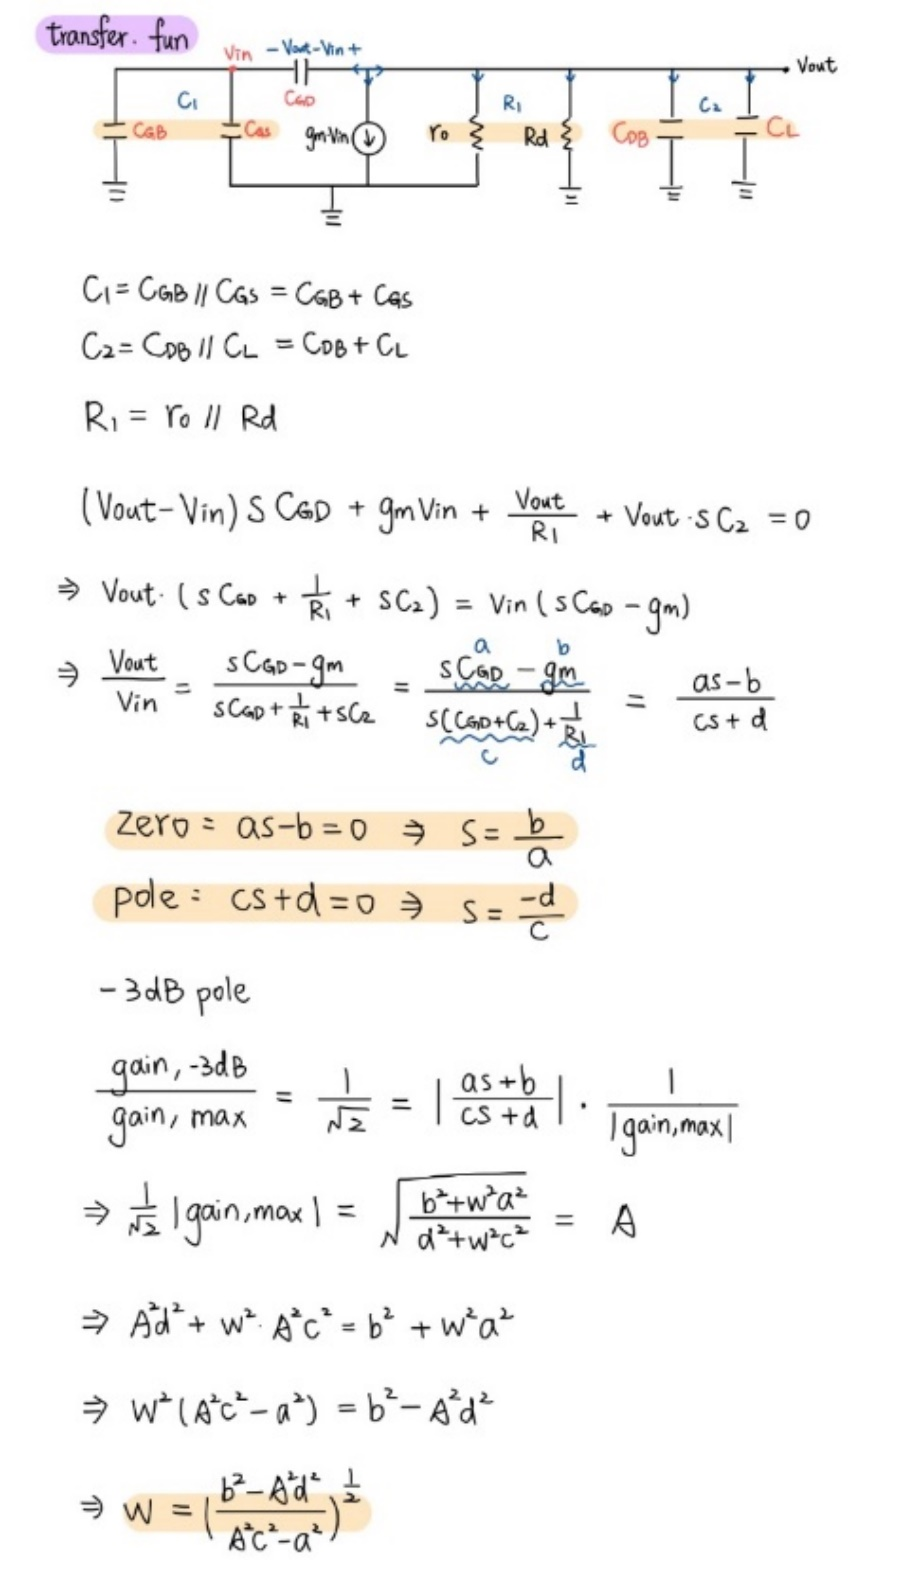 transfer. fun
Vin - Vout-Vin + Vout
C1 CGD R1 C2
CGB CGS gm·Vin ro Rd CDB CL
C1 = CGB // CGS = CGB + CGS
C2 = CDB // CL = CDB + CL
R1 = ro // Rd
(Vout-Vin) S CGD + gmVin + Vout/R1 + Vout·SC2 = 0
⇒ Vout· (SCGD + 1/R1 + SC2) = Vin (SCGD - gm)
a b
⇒ Vout/Vin = (SCGD - gm)/(SCGD + 1/R1 + SC2) = (SCGD - gm)/(S(CGD+C2) + 1/R1) = (as-b)/(cs+d)
c d
zero = as-b = 0 ⇒ S = b/a
pole = cs+d = 0 ⇒ S = -d/c
-3dB pole
gain, -3dB/gain, max = 1/√2 = |(as+b)/(cs+d)| · 1/|gain,max|
⇒ 1/√2 |gain,max| = √((b²+w²a²)/(d²+w²c²)) = A
⇒ A²d² + w²· A²c² = b² + w²a²
⇒ W²(A²c² - a²) = b² - A²d²
⇒ W = ((b² - A²d²)/(A²c² - a²))^1/2